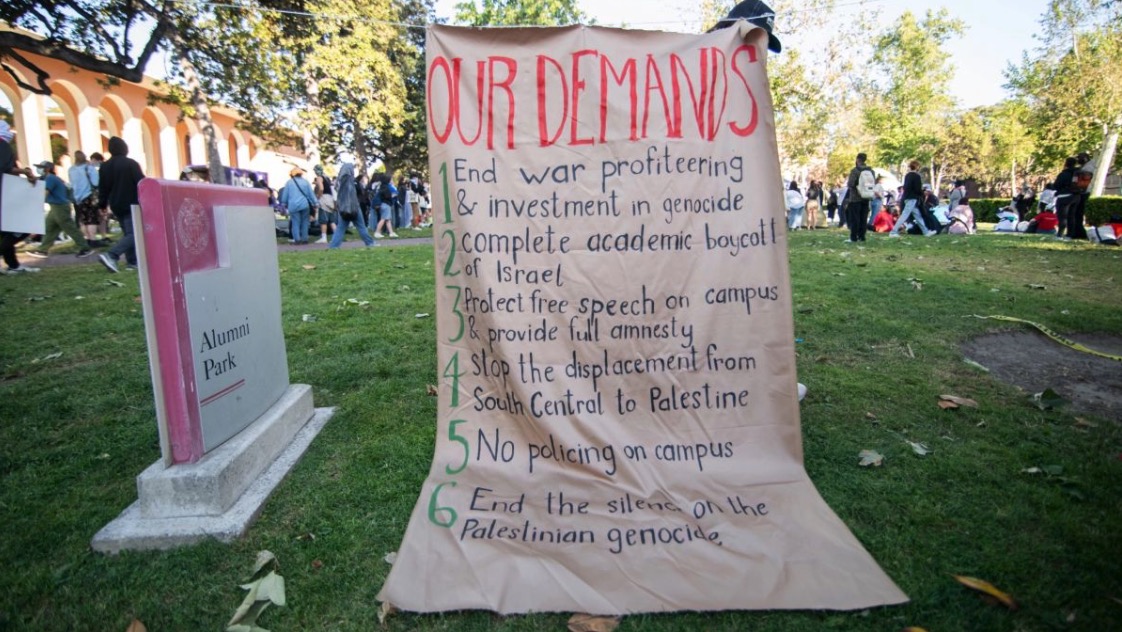 OUR DEMANDS
1 End war profiteering
& investment in genocide
2 complete academic boycott
of Israel
3 Protect free speech on campus
& provide full amnesty
4 Stop the displacement from
South Central to Palestine
5 No policing on campus
6 End the silence on the
Palestinian genocide.
Alumni
Park